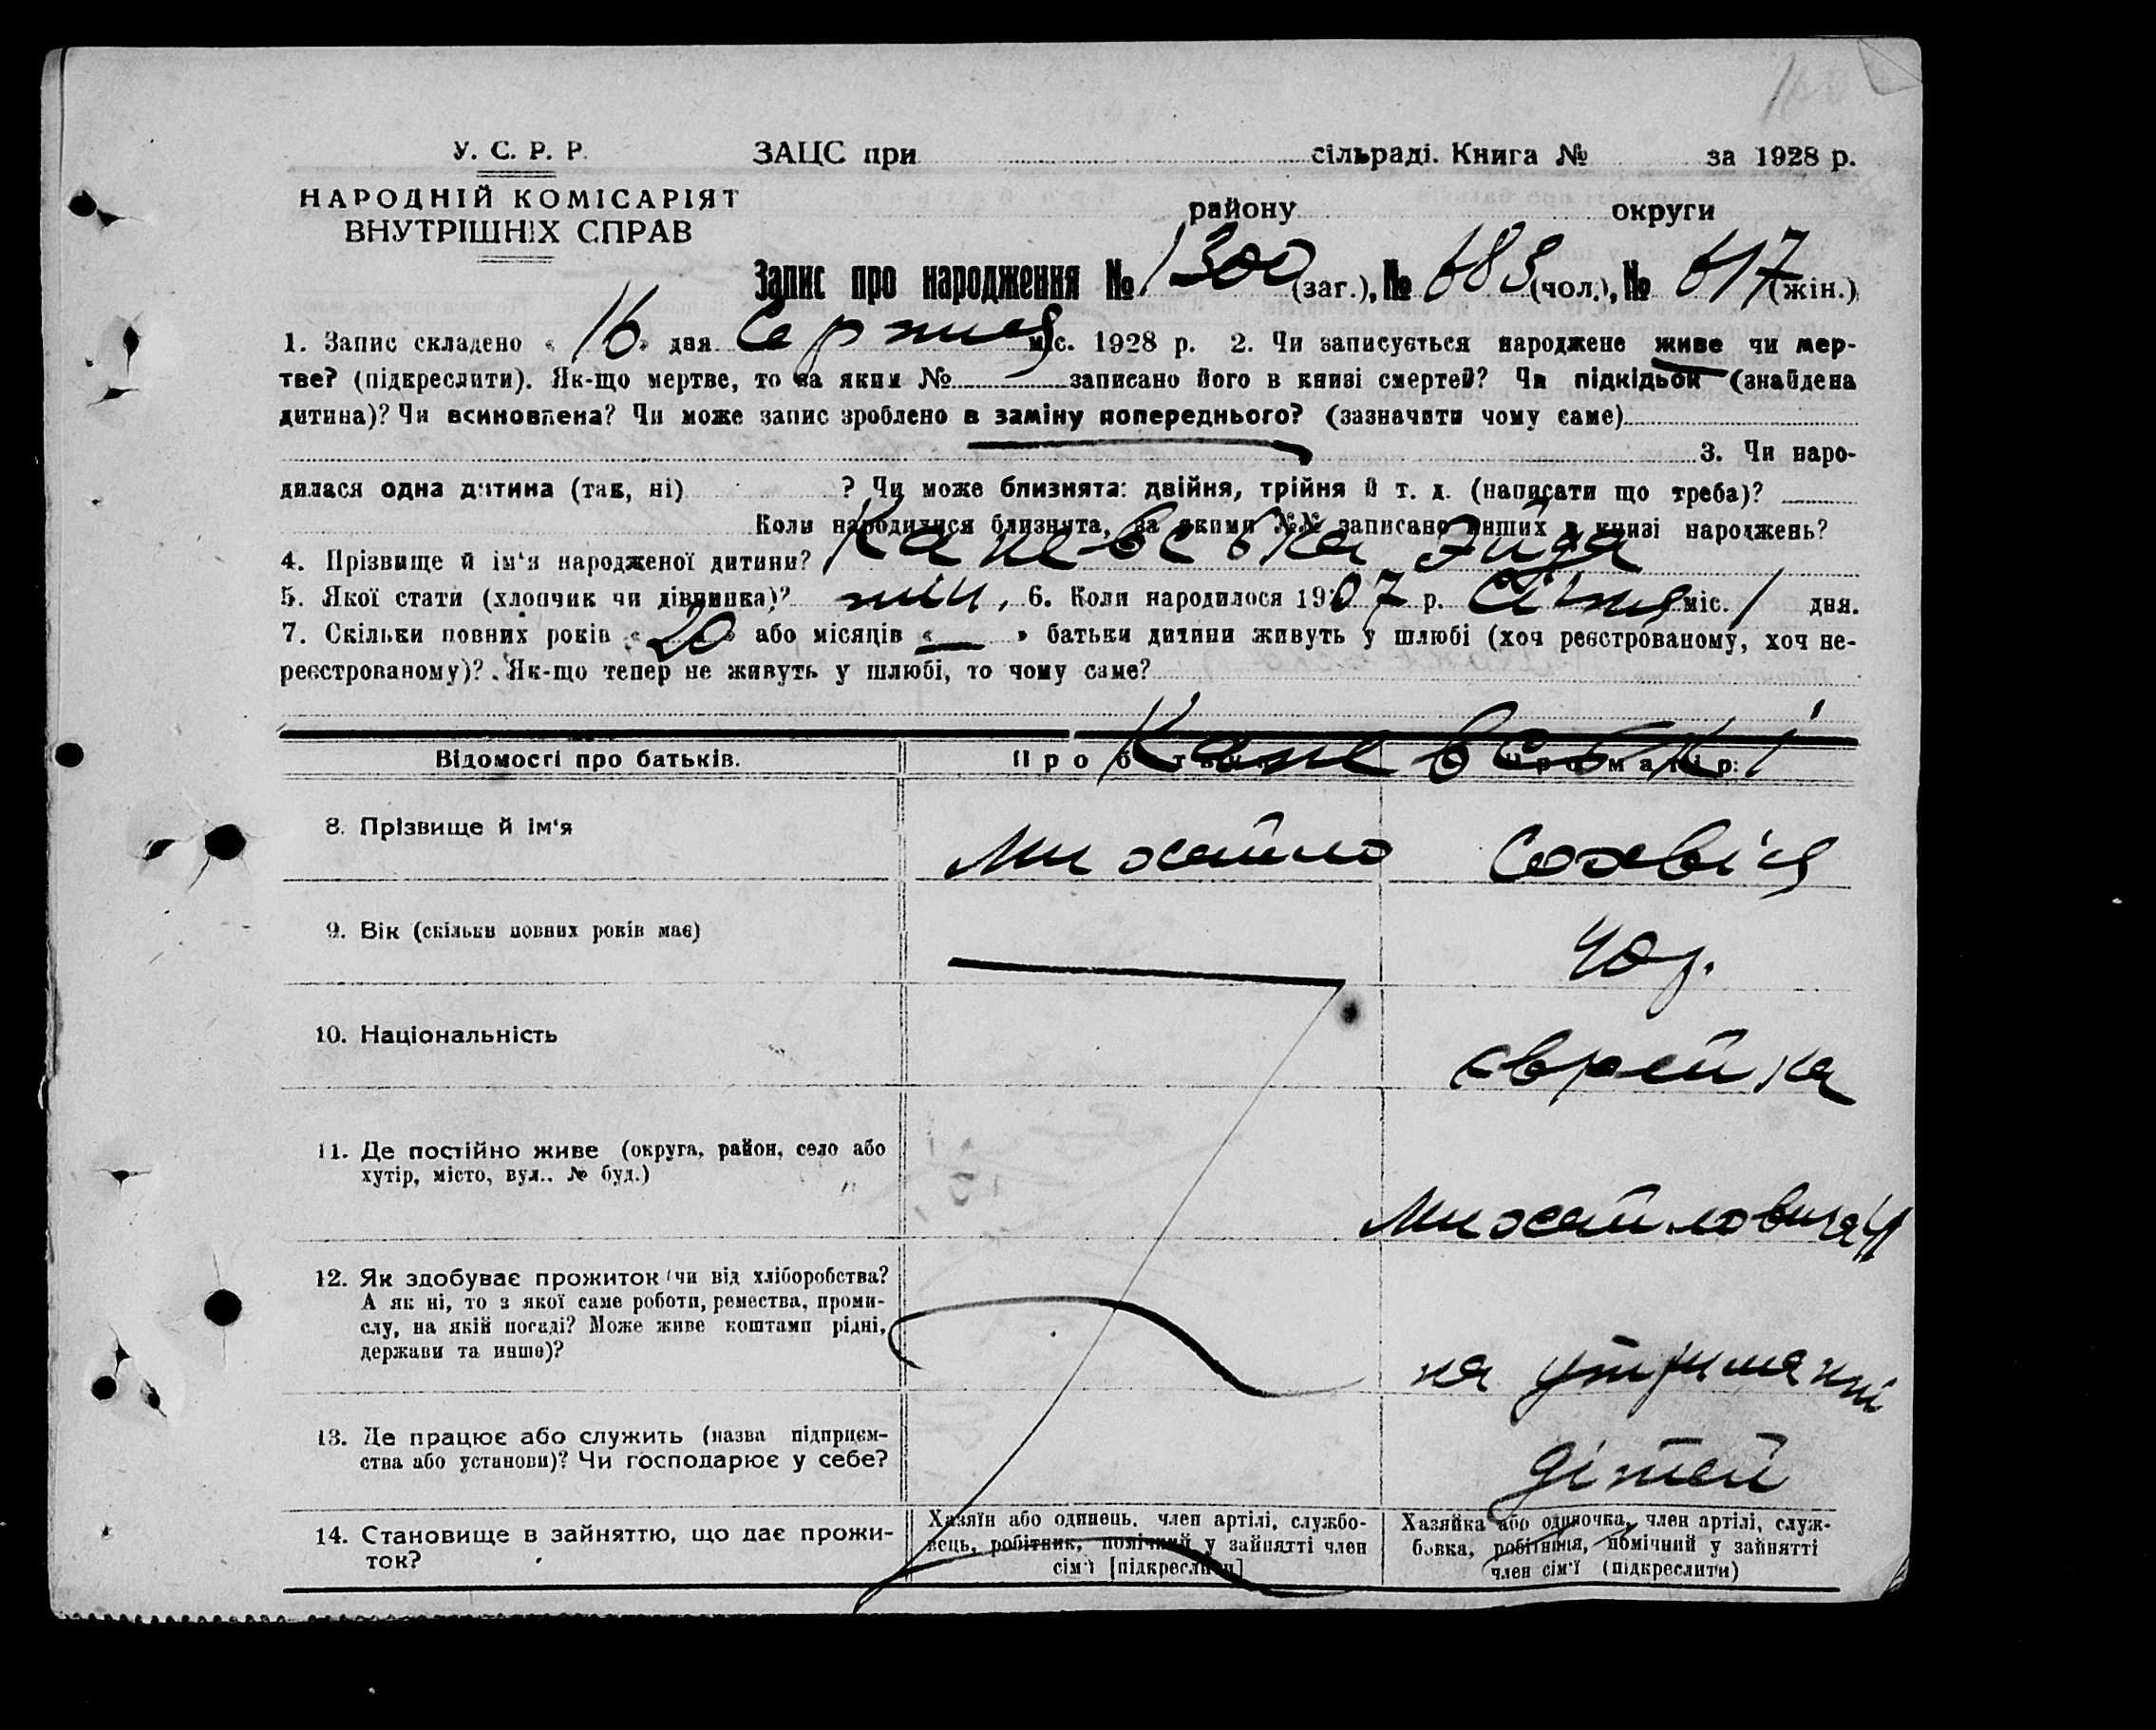 У. С. Р. Р.
НАРОДНІЙ КОМІСАРІЯТ
ВНУТРІШНІХ СПРАВ
ЗАЦС при сільраді. Книга № за 1928 р.
району округи
Запис про народження № 1300 (заг.), № 683 (чол.), № 617 (жін.)
1. Запис складено « 16 » дня Серпня міс. 1928 р. 2. Чи записується народжене живе чи мер-
тве? (підкреслити). Як-що мертве, то за яким № записано його в книзі смертей? Чи підкідьок (знайдена
дитина)? Чи всиновлена? Чи може запис зроблено в заміну попереднього? (зазначити чому саме)
3. Чи наро-
дилася одна дитина (так, ні) ? Чи може близнята: двійня, трійня й т. д. (написати що треба)?
Коли народилися близнята, за якими №№ записано инших в книзі народжень?
4. Прізвище й ім'я народженої дитини? Каневська
5. Якої стати (хлопчик чи дівчинка)? жін, 6. Коли народилося 1907 р. Січня міс. 1 дня.
7. Скільки повних років « 20 » або місяців « — » батьки дитини живуть у шлюбі (хоч реєстрованому, хоч не-
реєстрованому)? Як-що тепер не живуть у шлюбі, то чому саме?
Каневські
Відомості про батьків. Про батька: Про матір:
8. Прізвище й ім'я Михайло Софія
9. Вік (скільки повних років має) — 40 р.
10. Національність єврейка
11. Де постійно живе (округа, район, село або
хутір, місто, вул.. № буд.)
12. Як здобуває прожиток (чи від хліборобства?
А як ні, то з якої саме роботи, ремества, проми-
слу, на якій посаді? Може живе коштами рідні,
держави та инше)?
на утриманні
13. Де працює або служить (назва підприєм-
ства або установи)? Чи господарює у себе?
дітей
14. Становище в зайняттю, що дає прожи-
ток?
Хазяїн або одинець, член артілі, службо-
вець, робітник, помічний у зайнятті член
сім'ї [підкреслити]
Хазяйка або одиночка, член артілі, служ-
бовка, робітниця, помічний у зайнятті
член сім'ї (підкреслити)